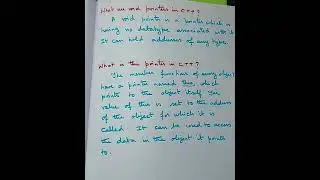 What are void pointers in C++?
A void pointer is a pointer which is
having no datatype associated with it
It can hold addresses of any type.
What is this pointer in C++?
The member functions of every object
have a pointer named this, which
points to the object itself. The
value of this is set to the address
of the object for which it is
called. It can be used to access
the data in the object it points
to.